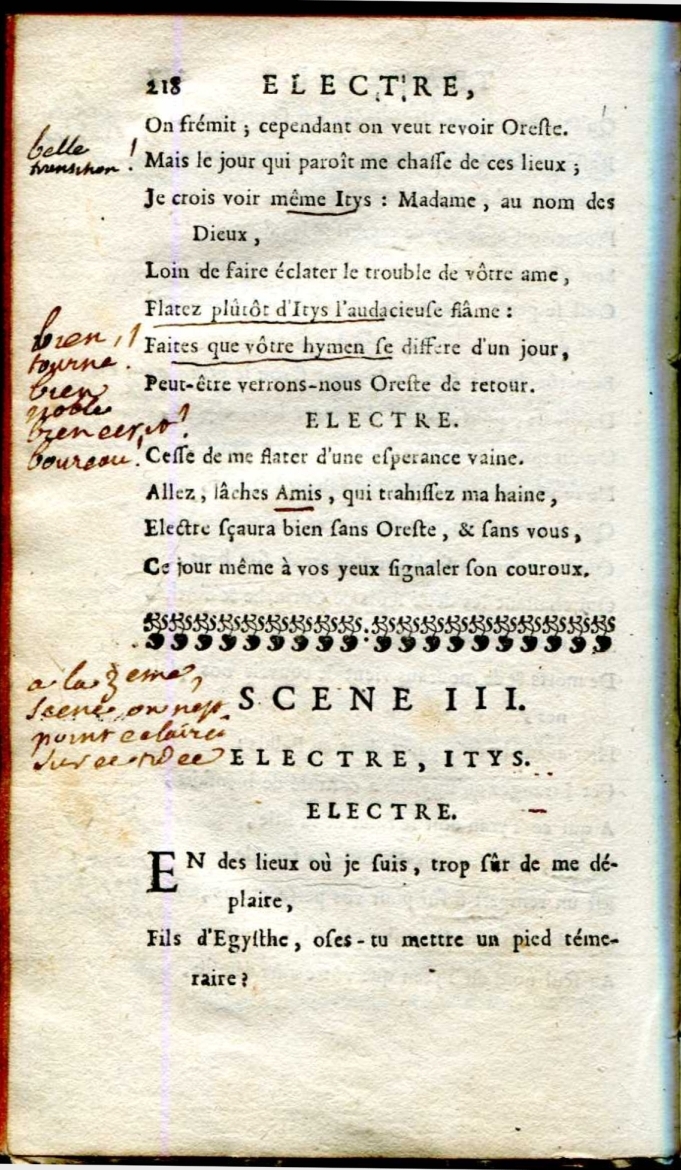 218 ELECTRE,
On frémit ; cependant on veut revoir Oreſte.
belle
transition !
Mais le jour qui paroît me chaſſe de ces lieux ;
Je crois voir même Itys : Madame, au nom des
Dieux,
Loin de faire éclater le trouble de vôtre ame,
Flatez plûtôt d'Itys l'audacieuſe flâme :
bien
tourné !
Faites que vôtre hymen ſe differe d'un jour,
bien
noble
Peut-être verrons-nous Oreſte de retour.
bien ecrit !
ELECTRE.
boureau !
Ceſſe de me flater d'une eſperance vaine.
Allez, lâches Amis, qui trahiſſez ma haine,
Electre ſçaura bien ſans Oreſte, & ſans vous,
Ce jour même à vos yeux ſignaler ſon couroux.
a la 3eme
scene on nest
point eclairci
sur cette idee
SCENE III.
ELECTRE, ITYS.
ELECTRE.
EN des lieux où je ſuis, trop ſûr de me dé-
plaire,
Fils d'Egyſthe, oſes-tu mettre un pied téme-
raire ?